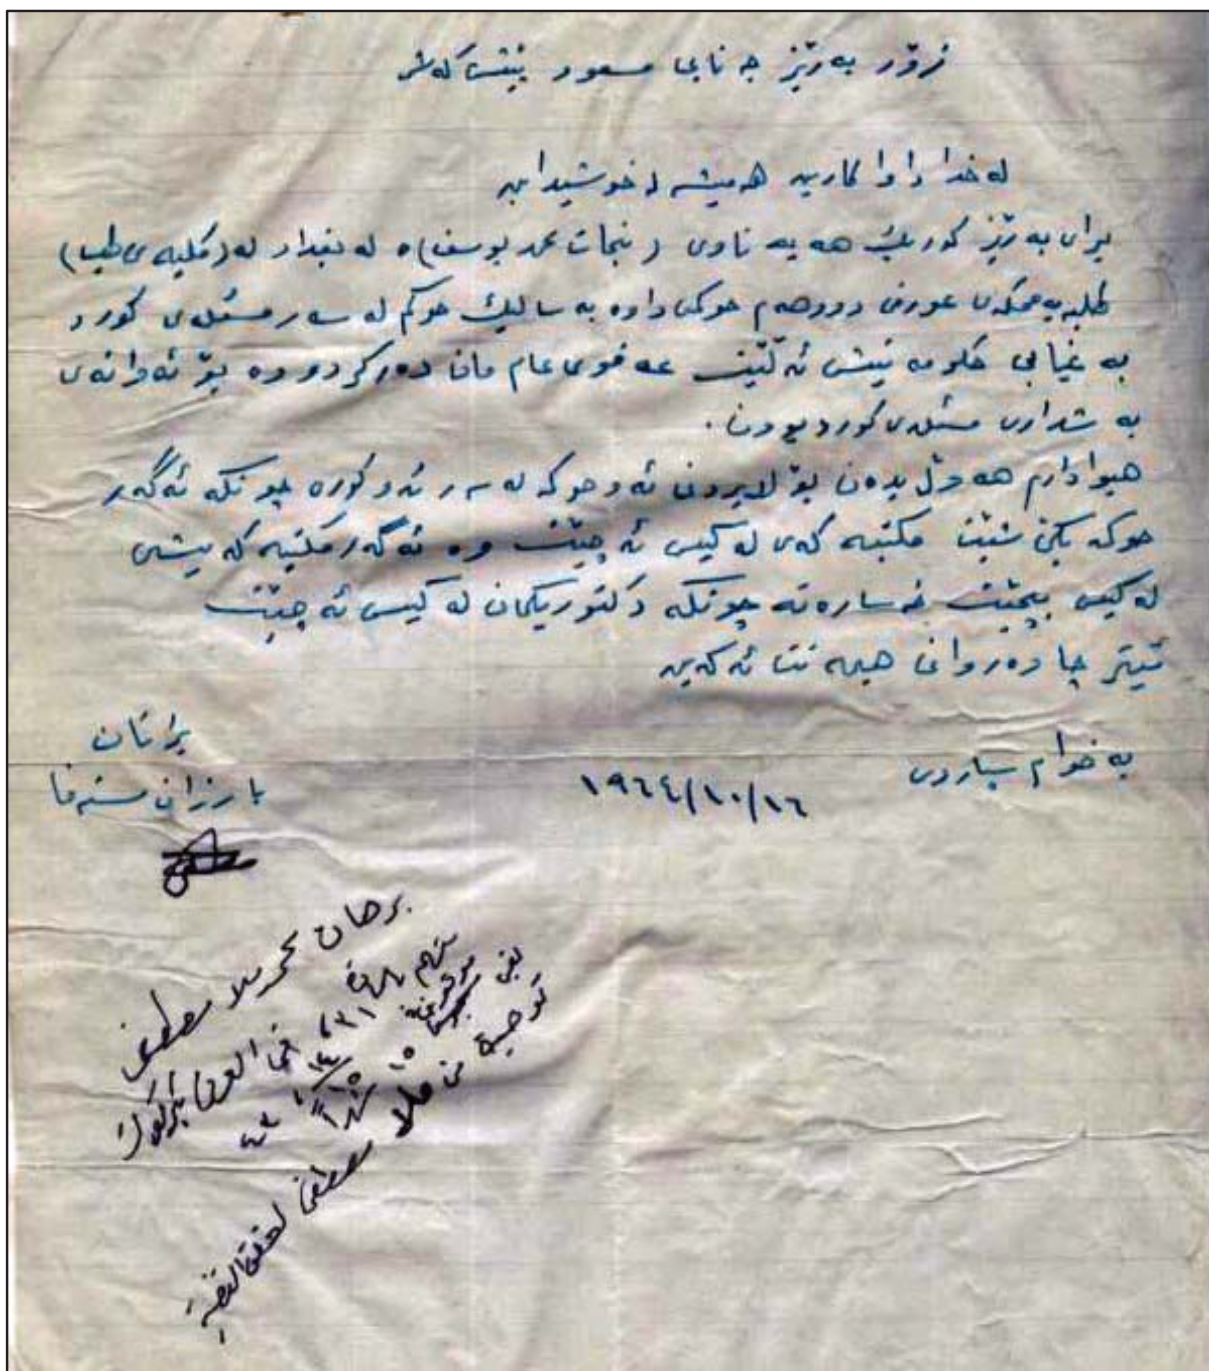 زۆر بەرێز جەنابی مسعود پێشکەش
لەخدا داواکارین هەمیشە لەخوشیدابن
برای بەرێز کورێک هەیە ناوی (نجات محمد یوسف)ە لە بغداد لە(کلیەی طب)
طلبەیە محکمەی عورفی دووهەم حوکمی داوە بە سالێک حوکم لە سەر مسئلەی کورد
بە غیابی حکومەتیش ئەلێت عەفوی عام مان دەرکردووە بۆ ئەوانەی
بەشداری مسئلەی کورد بوون.
هیوادارم هەول بدەن بۆ لابردنی ئەو حوکمە لە سەر ئەو کورە چونکە ئەگەر
حوکمەکەی مکتبەکەی لەکیس ئەچێت وە ئەگەر مکتبەکەیشی
لەکیس بچێت خەسارەتە چونکە دکتوریکمان لەکیس ئەچێت
ئیتر چاوەروانی هیمەتتان ئەکەین
بەخوام سپاردی
١٩٦٤/١٠/١٦
براتان
بارزان مستەفا
برهان محمد ملا مصطفى
متهم بالمادة
٣١ من العرفي كركوك
توصية من ملا مصطفى لغلق القضية